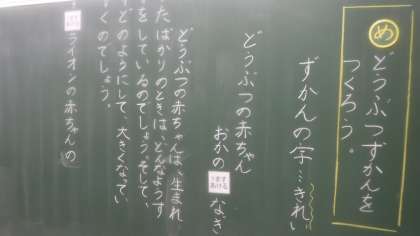 め どうぶつずかんを
つくろう。
ずかんの字…きれい
どうぶつの赤ちゃん
おかの
1ます
あける
なぎ
どうぶつの赤ちゃんは、生まれ
たばかりのときは、どんなようす
をしているのでしょう。そして、
どのようにして、大きくなってい
くのでしょう。
ライオンの赤ちゃんの